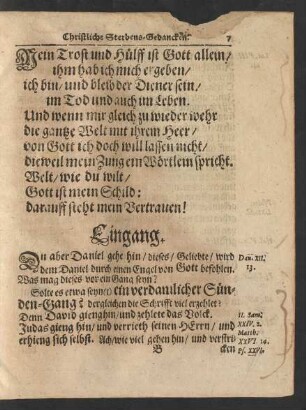 Christliche Sterbens-Gedancken. 7
Mein Trost und Hülff ist Gott allein/
ihm hab ich mich ergeben/
ich bin/ und bleib der Diener sein/
im Tod und auch im Leben.
Und wenn mir gleich zu wieder wehr
die gantze Welt mit ihrem Heer/
von Gott ich doch will lassen nicht/
dieweil mein Zung ein Wörtlein spricht.
Welt/ wie du wilt/
Gott ist mein Schild:
darauff steht mein Vertrauen!
Eingang.
Du aber Daniel gehe hin/ dieses/ Geliebte/ wird
dem Daniel durch einen Engel von Gott befohlen.
Was mag dieses vor ein Gang seyn?
Solte es etwa seyn ein verdamlicher Sün-
den-Gang? dergleichen die Schrift viel erzehlet:
Denn David gieng hin/ und zehlete das Volck.
Judas gieng hin/ und verrieth seinen HErrn/ und
erhieng sich selbst. Ach/ wie viel gehen hin/ und verstri-
B cken
Dan. XII.
13.
II. Sam.
XXIV. 2.
Matth.
XXVI 14.